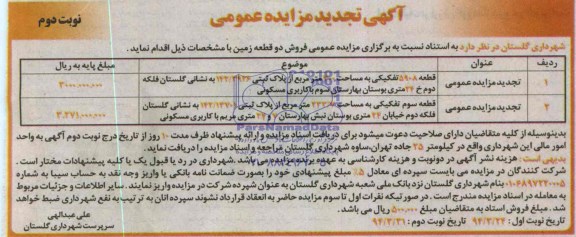 آگهی تجدید مزایده عمومی
نوبت دوم
شهرداری گلستان در نظر دارد به استناد نسبت به برگزاری مزایده عمومی فروش دو قطعه زمین با مشخصات ذیل اقدام نماید.
ردیف عنوان موضوع مبلغ پایه به ریال
۱ تجدید مزایده عمومی قطعه ۵۹۰۸ تفکیکی به مساحت متر مربع از پلاک ثبتی به نشانی گلستان فلکه دوم خ ۲۴ متری بوستان بهارستان سوم با کاربری مسکونی ۳۰۰۰,۰۰۰,۰۰۰
۲ تجدید مزایده عمومی قطعه سوم تفکیکی به مساحت متر مربع از پلاک ثبتی به نشانی گلستان فلکه دوم خیابان ۲۴ متری بوستان نبش بهارستان متری مریم با کاربری مسکونی ۳,۲۷۱,۰۰۰,۰۰۰
ParsNamadData
بدینوسیله از کلیه متقاضیان دارای صلاحیت دعوت میشود برای دریافت اسناد مزایده و ارائه پیشنهاد ظرف مدت ۱۰ روز از تاریخ درج نوبت دوم آگهی به واحد
امور مالی این شهرداری واقع در کیلومتر ۲۵ جاده تهران-ساوه شهرداری گلستان مراجعه و اسناد مزایده را دریافت نماید.
بدیهی است: هزینه نشر آگهی در دو نوبت و هزینه کارشناسی به عهده برنده مزایده می باشد. شهرداری در رد یا قبول یک یا کلیه پیشنهادات مختار است.
شرکت کنندگان در مزایده می بایست سپرده ای معادل ۵٪ مبلغ پیشنهادی خود را بصورت ضمانت نامه بانکی یا واریز وجه نقد به حساب سیبا به شماره
۰۱۰۶۸۹۷۲۲۰۰۰۵ بنام شهرداری گلستان نزد بانک ملی شعبه شهرداری گلستان به عنوان سپرده شرکت در مزایده واریز نمایند. سایر اطلاعات و جزئیات مربوط
به معامله در اسناد مزایده مندرج است. در صورتیکه نفرات اول تا سوم مزایده حاضر به انعقاد قرارداد نشوند سپرده آنان به ترتیب به نفع شهرداری ضبط خواهد
شد. مبلغ فروش اسناد به متقاضیان مبلغ ۵۰۰,۰۰۰ ریال می باشد.
تاریخ نوبت اول: ۹۴/۲/۲۴ تاریخ نوبت دوم: ۹۴/۲/۳۱
علی عبدالهی
سرپرست شهرداری گلستان